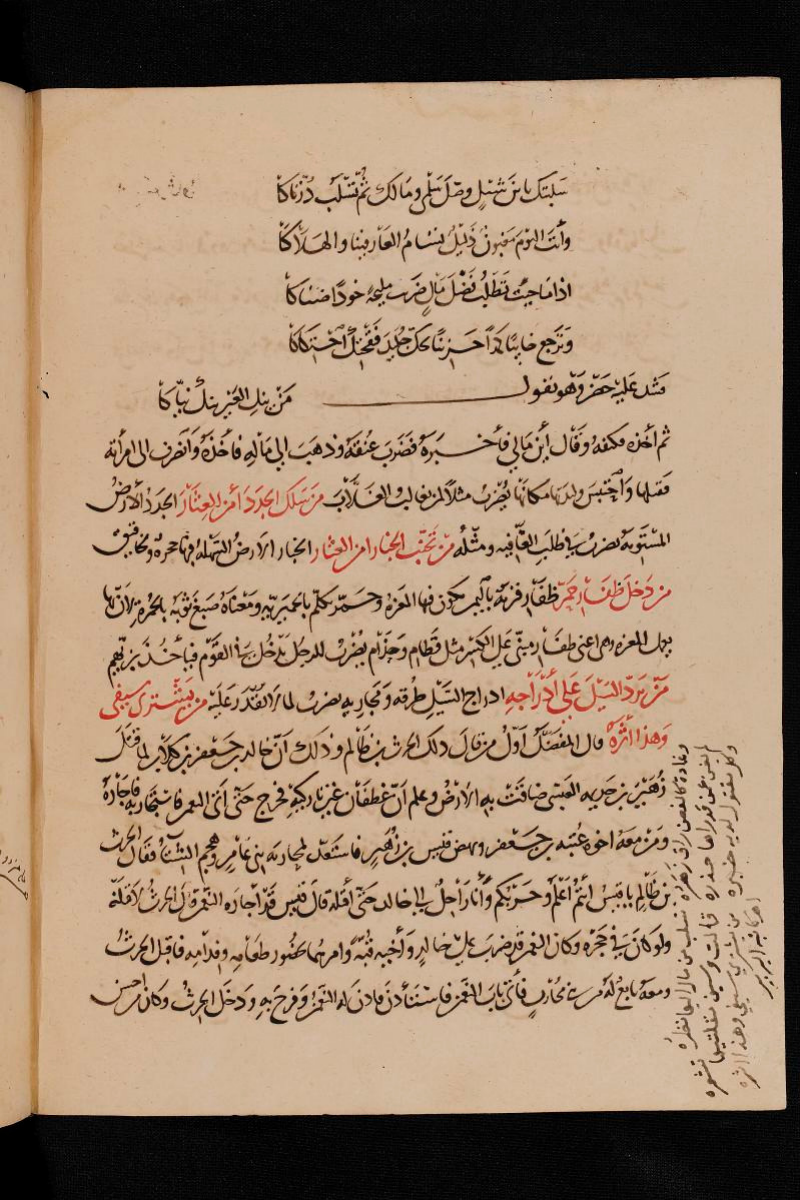 سلبتك يا بن شنبل وصل سلمى ومالك ثم تسلب درتاكا
وأنت اليوم مغبون ذليل تسام العار فينا والهلاكا
اذا ما جيت تطلب فضل مال ضربت مليحة خودا ضناكا
وترجع خايبا كمدا حزينا تحك جليد فقحتك احتكاكا
فشد عليه حمز وهو يقول من ينك العير ينك نياكا
ثم أخذه فكتفه وقال أين مالي فأخبره فضرب عنقه وذهب الى ماله فأخذه وانصرف الى امرأته
فقتلها واحتبس وليدتها مكانها يضرب مثلا لمن يغالب الغلاب من سلك الجدد أمن العثار الجدد الأرض
المستوية يضرب في طلب العافية ومثله من تجنب الخبار امن العثار الخبار الأرض السهلة فيها جحرة ولخاقيق
من دخل ظفار حمر ظفار قرية باليمن يكون فيها المغرة وحمر تكلم بالحميرية ومعناه صبغ ثوبه بالحمرة لأن بها
يعمل المغرة وهي اعني ظفار مبني على الكسر مثل قطام وحذام يضرب للرجل يدخل في القوم فيأخذ بزيهم
من يرد السيل على أدراجه ادراج السيل طرقه ومجاريه يضرب لما لا يقدر عليه من يشتري سيفي
وهذا أثره قال المفضل أول من قال ذلك الحرث بن ظالم وذلك أن خالد بن جعفر بن كلاب لما قتل
زهير بن جذيمة العبسي ضاقت به الأرض وعلم أن غطفان غير تاركيه فخرج حتى أتى النعمن فاستجار به فاجاره
ومن معه اخوه عتبة بن جعفر ونهض قيس بن زهير فاستعد لمحاربة بني عامر وهجم الشتاء فقال الحرث
بن ظالم يا قيس أنتم أعلم وحربكم وأنا راحل الى خالد حتى أقتله قال قيس قد أجاره النعمن قال الحرث لأقتلنه
ولو كان في حجره وكان النعمن قد ضرب على خالد وأخيه قبة وامرهما بحضور طعامه وفدامه فاقبل الحرث
ومعه تابع له من بني محارب فأتى باب النعمن فاستأذن فاذن له النعمن وفرح به ودخل الحرث وكان من احسن
وغادة كالغصن راق زهره تسلب من مال اليها نظره
قالت وسيف مقلتيها تشهره
من يشتري سيفي وهذا اثره